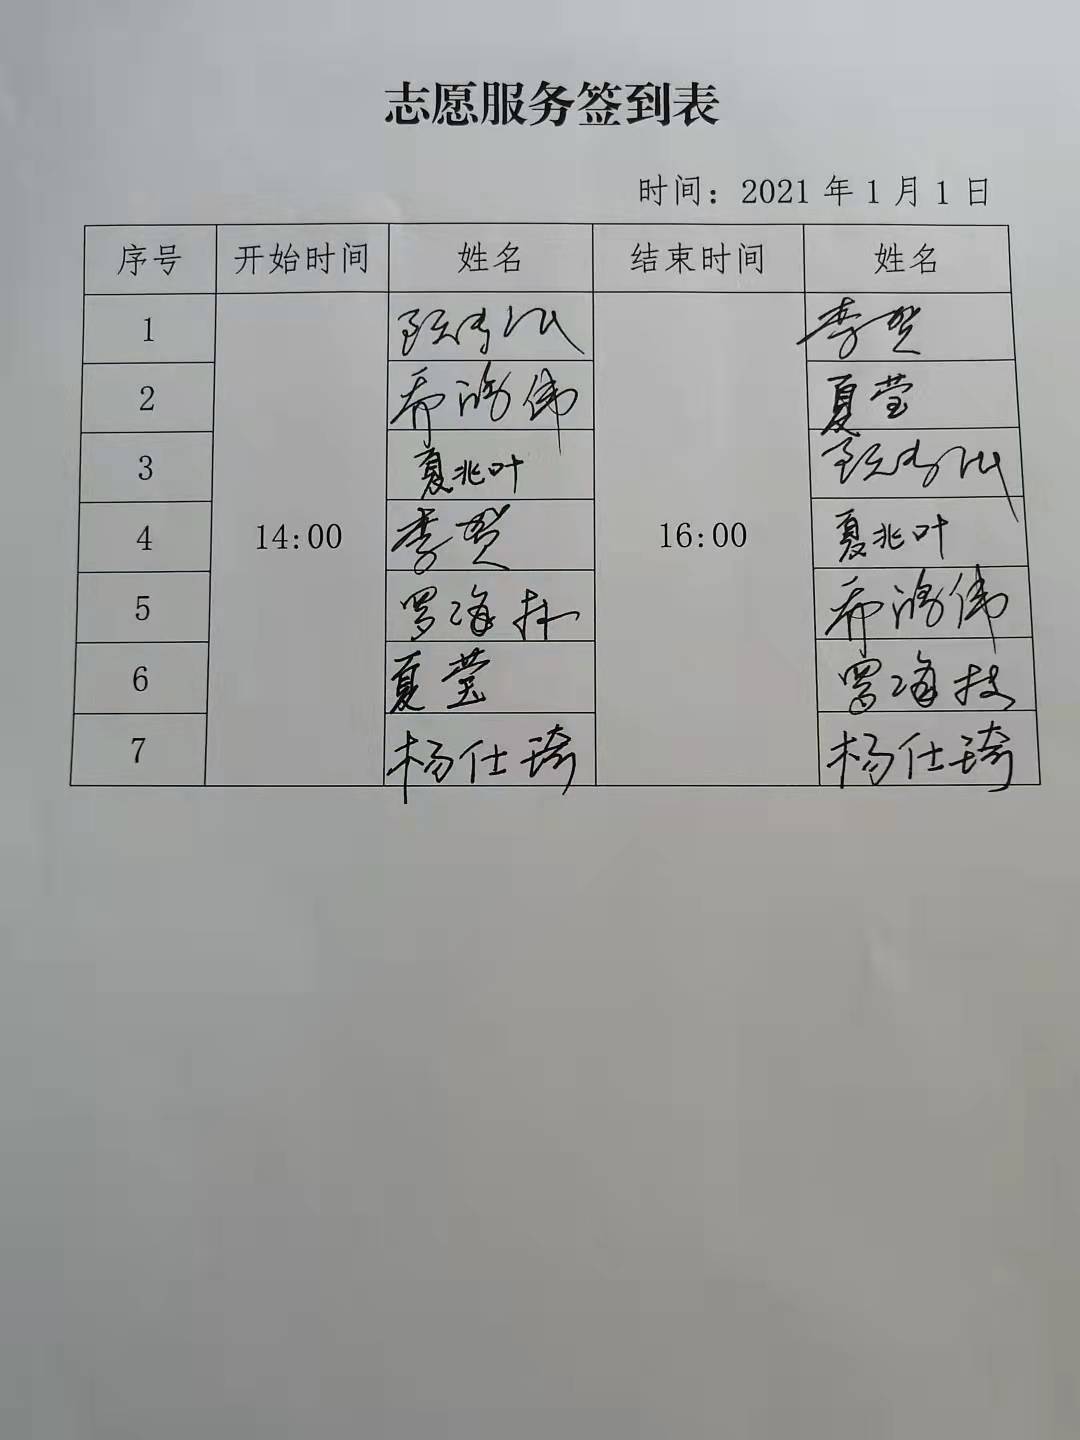 志愿服务签到表
时间：2021年1月1日
序号 开始时间 姓名 结束时间 姓名
1 李贺
2 夏莹
3 夏兆叶
14:00 16:00
4 李贺 夏兆叶
5 罗海
6 夏莹 罗海
7 杨仕琦 杨仕琦